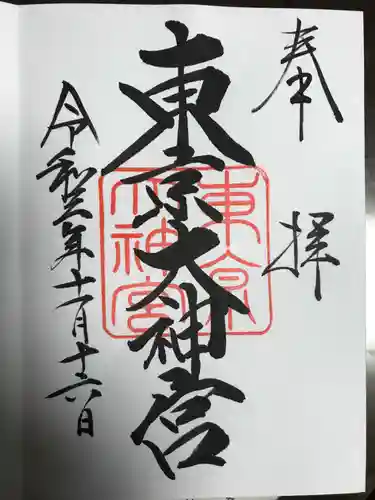 奉拝
東京大神宮
東京大神宮
令和三年十一月十六日